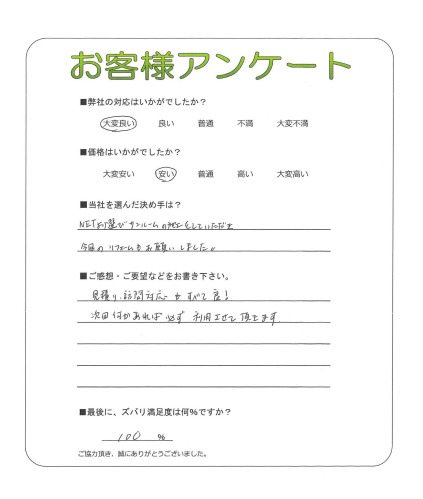 お客様アンケート
■弊社の対応はいかがでしたか？
大変良い 良い 普通 不満 大変不満
■価格はいかがでしたか？
大変安い 安い 普通 高い 大変高い
■当社を選んだ決め手は？
NETで選びサンルームの施工をしていただき
今回のリフォームもお願いしました。
■ご感想・ご要望などをお書き下さい。
見積り、訪問対応もすべて良！
次回何かあれば必ず利用させて頂きます。
■最後に、ズバリ満足度は何%ですか？
100 %
ご協力頂き、誠にありがとうございました。